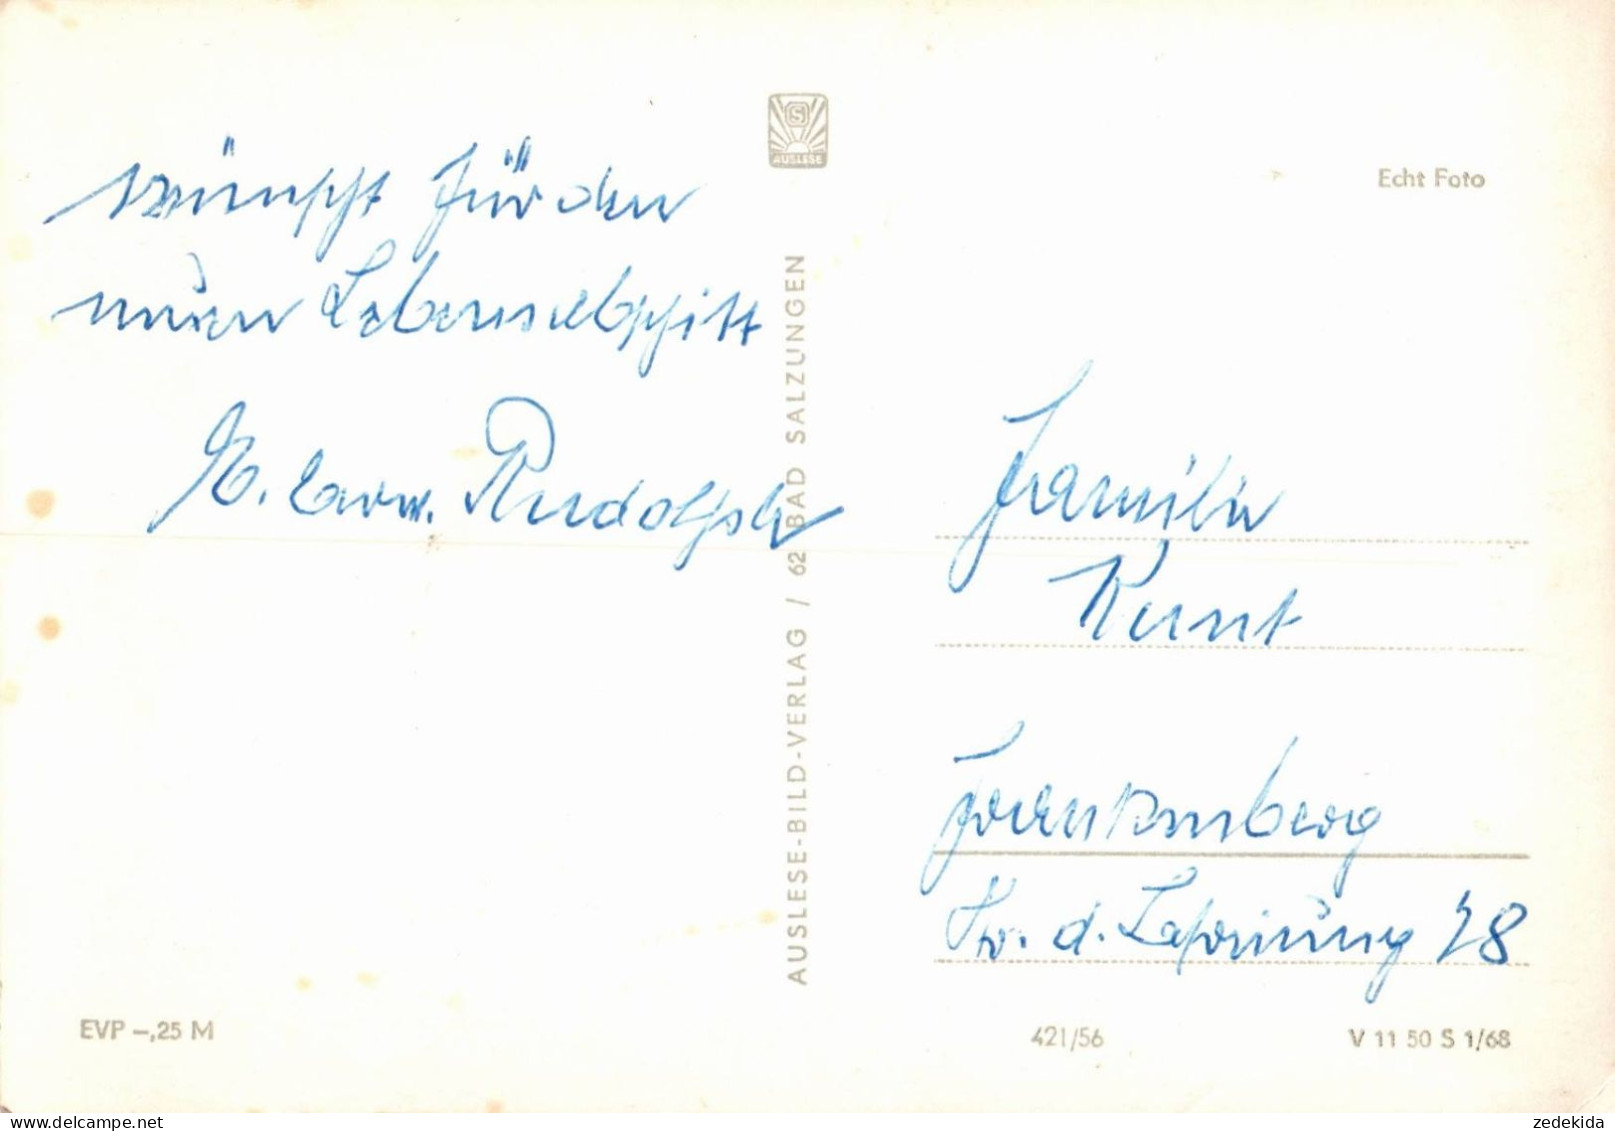 wünscht für den
neuen Lebensabschitt
Rudolph
S
AUSLESE
AUSLESE-BILD-VERLAG / 62 BAD SALZUNGEN
Echt Foto
Familie
Kunt
Frankenberg
Str. d. Befreiung 28
EVP –,25 M
421/56
V 11 50 S 1/68
zedekida